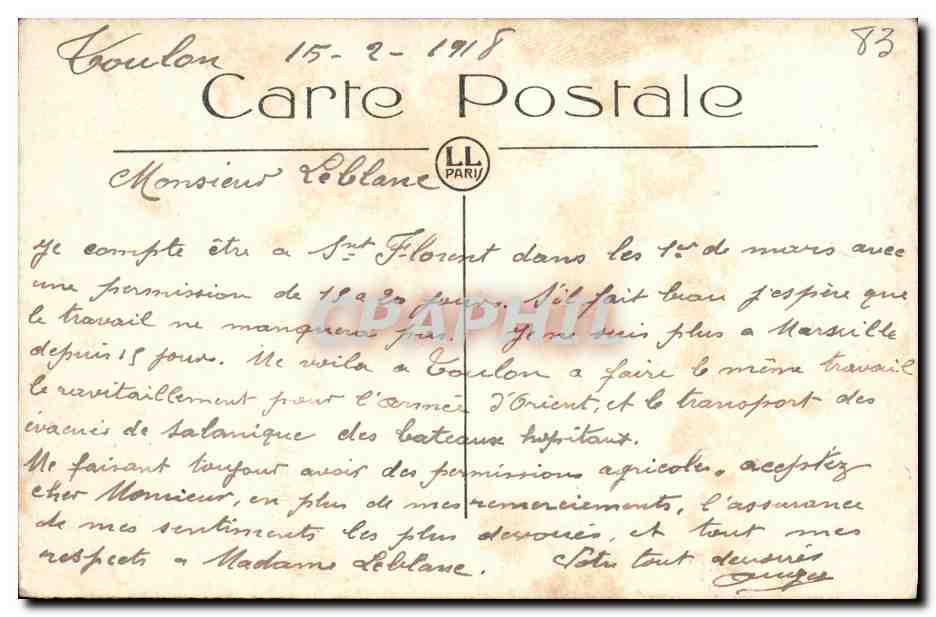 Toulon 15-2-1918
83
Carte Postale
LL
PARIS
Monsieur Leblanc
Je compte être a Snt Florent dans les 1er de mars avec
une permission de 15 a 20 jours. S'il fait beau j'espère que
le travail ne manquera pas. Je ne suis plus a Marseille
depuis 15 jours. Me voila a Toulon a faire le même travail
le ravitaillement pour l'armée d'Orient, et le transport des
évacués de Salonique des bateaux hopitaux.
Me faisant toujout avoir des permissions agricoles, aceptez
cher Monsieur, en plus de mes remerciements, l'assurance
de mes sentiments les plus devoués, et tout mes
respects a Madame Leblanc. Votre tout devoués
CPAPHIL